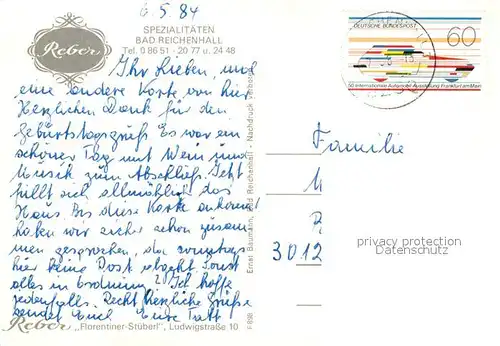 6.5.84
Reber
SPEZIALITÄTEN
BAD REICHENHALL
Tel. 0 86 51 - 20 77 u. 24 48
Ihr Lieben, und
eine andere Karte von hier
Herzlichen Dank für den
Geburtstagsgruß. Es war ein
schöner Tag mit Wein und
Musik zum Abschluß. Jetzt
füllt sich allmählich das
Haus. Bis diese Karte ankommt
haben wir sicher schon zusam
men gesprochen, da sonntags
hier keine Post abgeht. Sonst
alles in Ordnung? Ich hoffe
jedenfalls. Recht herzliche Grüße
sendet Euch Eure
Reber „Florentiner-Stüberl", Ludwigstraße 10
Ernst Baumann, Bad Reichenhall - Nachdruck
DEUTSCHE BUNDESPOST
60
50 Internationale Automobil-Ausstellung Frankfurt am Main
Familie
3012
privacy protection
Datenschutz